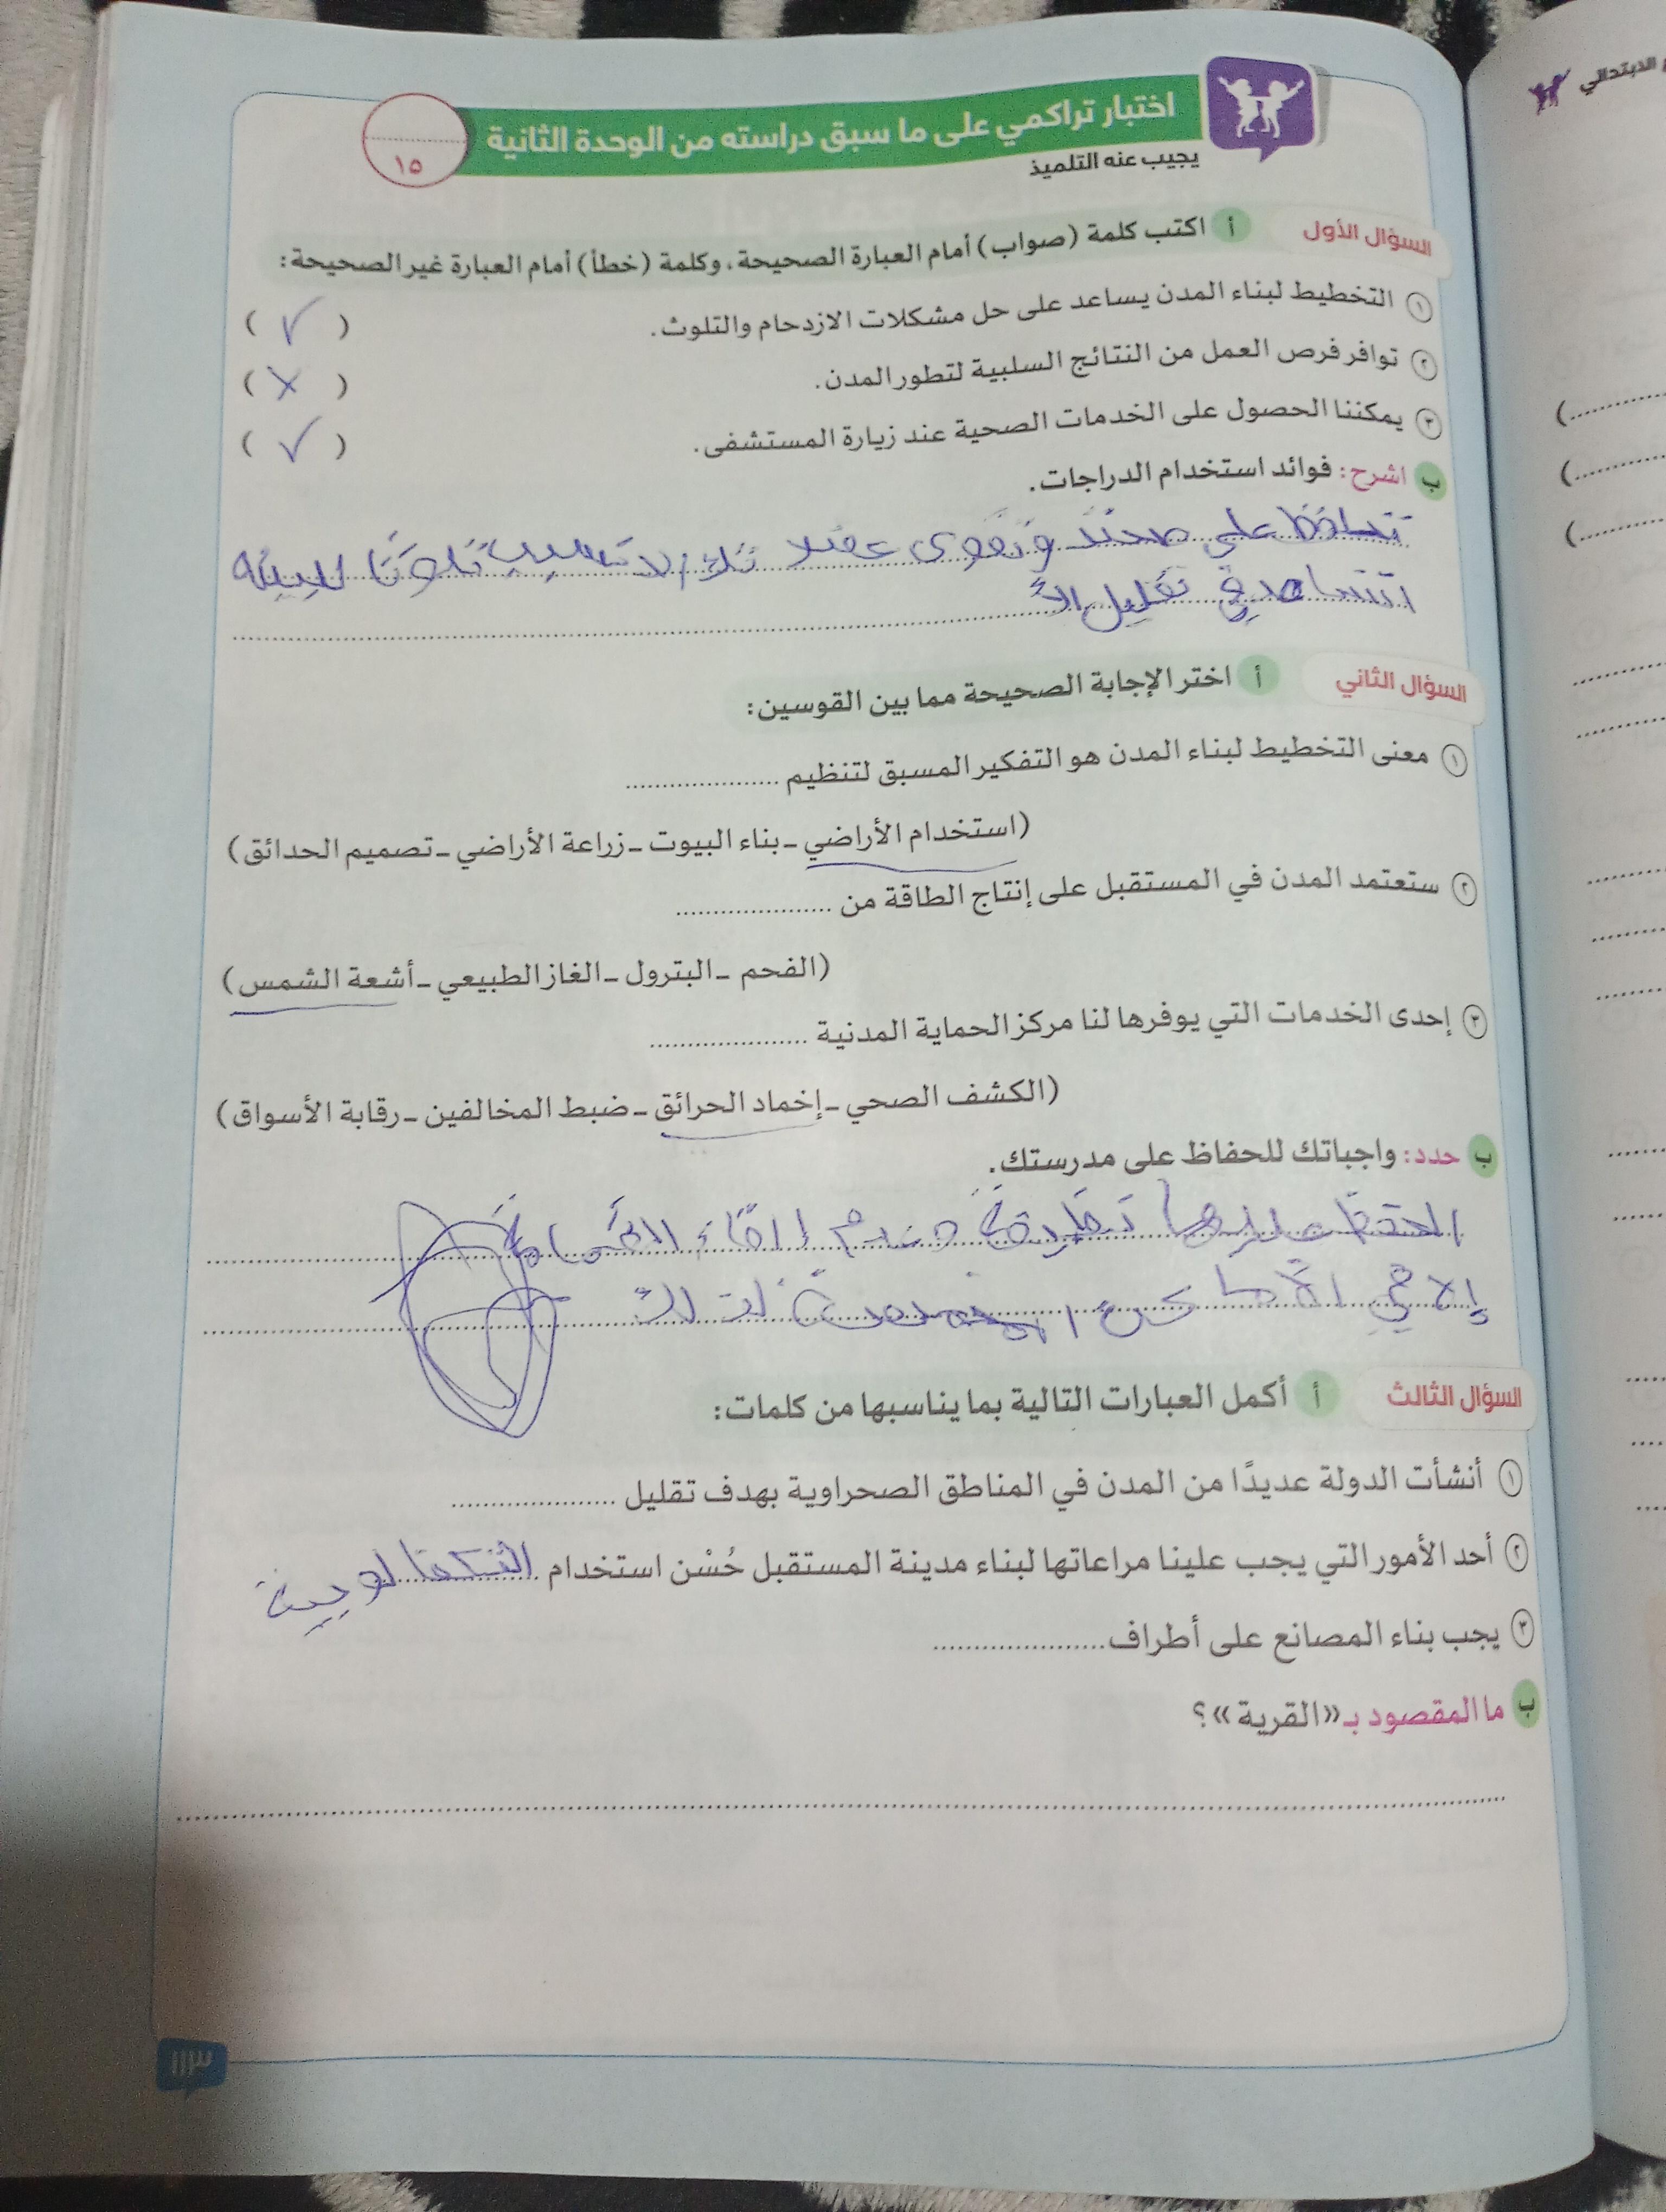 اختبار تراكمي على ما سبق دراسته من الوحدة الثانية
١٥
يجيب عنه التلميذ
م الابتدائي
السؤال الأول أ اكتب كلمة (صواب) أمام العبارة الصحيحة، وكلمة (خطأ) أمام العبارة غير الصحيحة:
١ التخطيط لبناء المدن يساعد على حل مشكلات الازدحام والتلوث. ( ✓ )
٢ توافر فرص العمل من النتائج السلبية لتطور المدن. ( X )
٣ يمكننا الحصول على الخدمات الصحية عند زيارة المستشفى. ( ✓ )
ب اشرح: فوائد استخدام الدراجات.
على وتقوى لا تسبب تلوثا للبيئه
في تقليل
السؤال الثاني أ اختر الإجابة الصحيحة مما بين القوسين:
١ معنى التخطيط لبناء المدن هو التفكير المسبق لتنظيم ....................
(استخدام الأراضي – بناء البيوت – زراعة الأراضي – تصميم الحدائق)
٢ ستعتمد المدن في المستقبل على إنتاج الطاقة من ....................
(الفحم – البترول – الغاز الطبيعي – أشعة الشمس)
٣ إحدى الخدمات التي يوفرها لنا مركز الحماية المدنية ....................
(الكشف الصحي – إخماد الحرائق – ضبط المخالفين – رقابة الأسواق)
ب حدد: واجباتك للحفاظ على مدرستك.
عليها إلقاء القمامة
إلا في الأماكن
السؤال الثالث أ أكمل العبارات التالية بما يناسبها من كلمات:
١ أنشأت الدولة عديدًا من المدن في المناطق الصحراوية بهدف تقليل ....................
٢ أحد الأمور التي يجب علينا مراعاتها لبناء مدينة المستقبل حُسْن استخدام
٣ يجب بناء المصانع على أطراف ....................
ب ما المقصود بـ «القرية»؟
١١٣